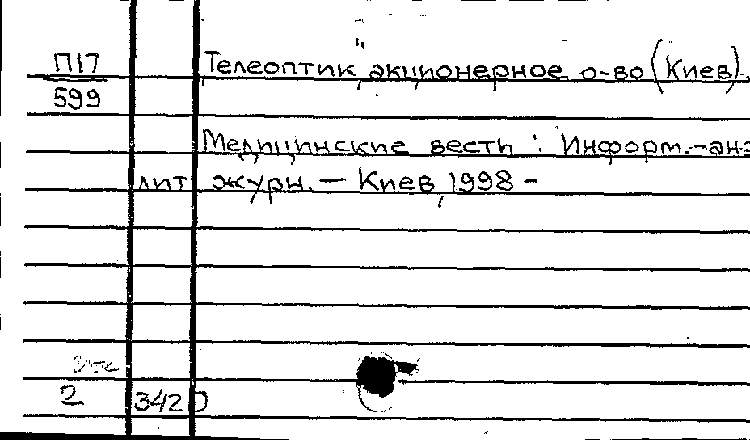 П17 Телеоптик, акционерное о-во (Киев).
599
Медицинские вести : Информ.-ана
лит журн. — Киев, 1998 -
2 342